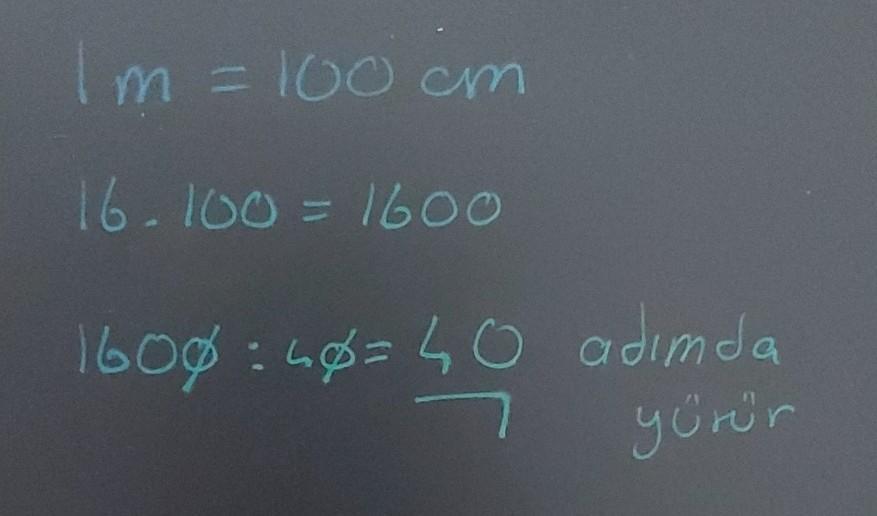 1 m = 100 cm
16 . 100 = 1600
1600 : 40 = 40 adımda
yürür